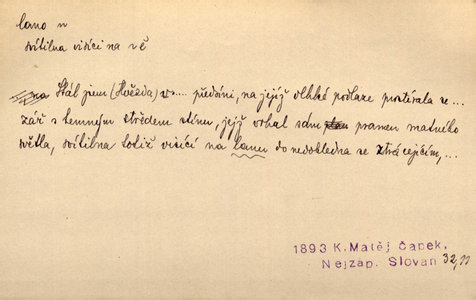 lano n
svítilna visící na vě
Stál jsem (Hvězda) v.... předsíni, na jejíž vlhké podlaze prostírala se ...
zář s temným středem stínu, jejž vrhal sám pramen matného
světla, svítilna totiž visící na lanu do nedohledna se ztrácejícím, ...
1893 K. Matěj Čapek,
Nejzap. Slovan 32,